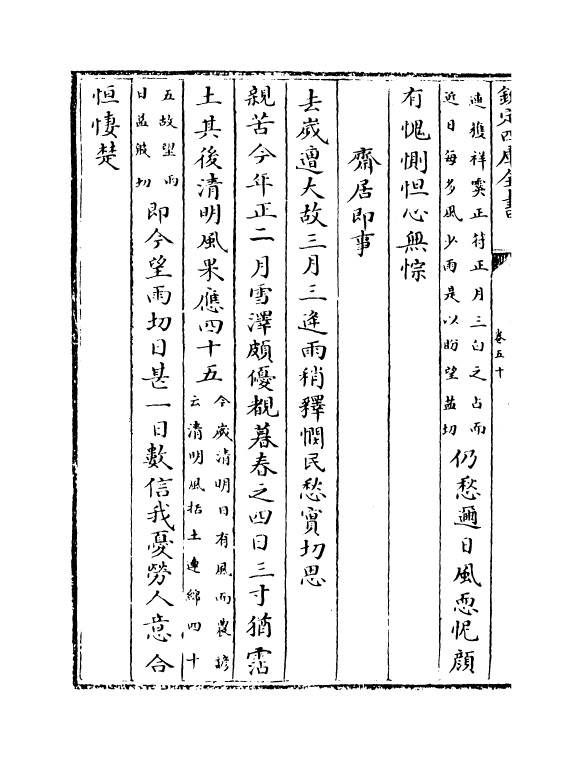 欽定四庫全書
卷五十
連獲祥霙正符正月三白之占而
近日每多風少雨是以盼望益切
仍愁邇日風恧怩顔
有愧惻怛心無悰
齋居即事
去歲遭大故三月三逢雨稍釋憫民愁實切思
親苦今年正二月雪澤頗優覩暮春之四日三寸猶霑
土其後清明風果應四十五
今歲清明日有風而農諺
云清明風括土連綿四十
五故望雨
日益殷切
即今望雨切日甚一日數信我憂勞人意合
恒悽楚